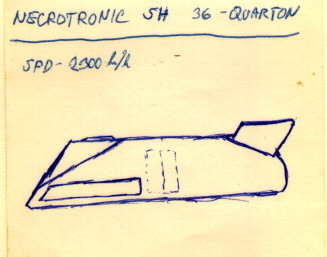 NECROTRONIC SH 36 - QUARTON
SPD - 2300 h/h